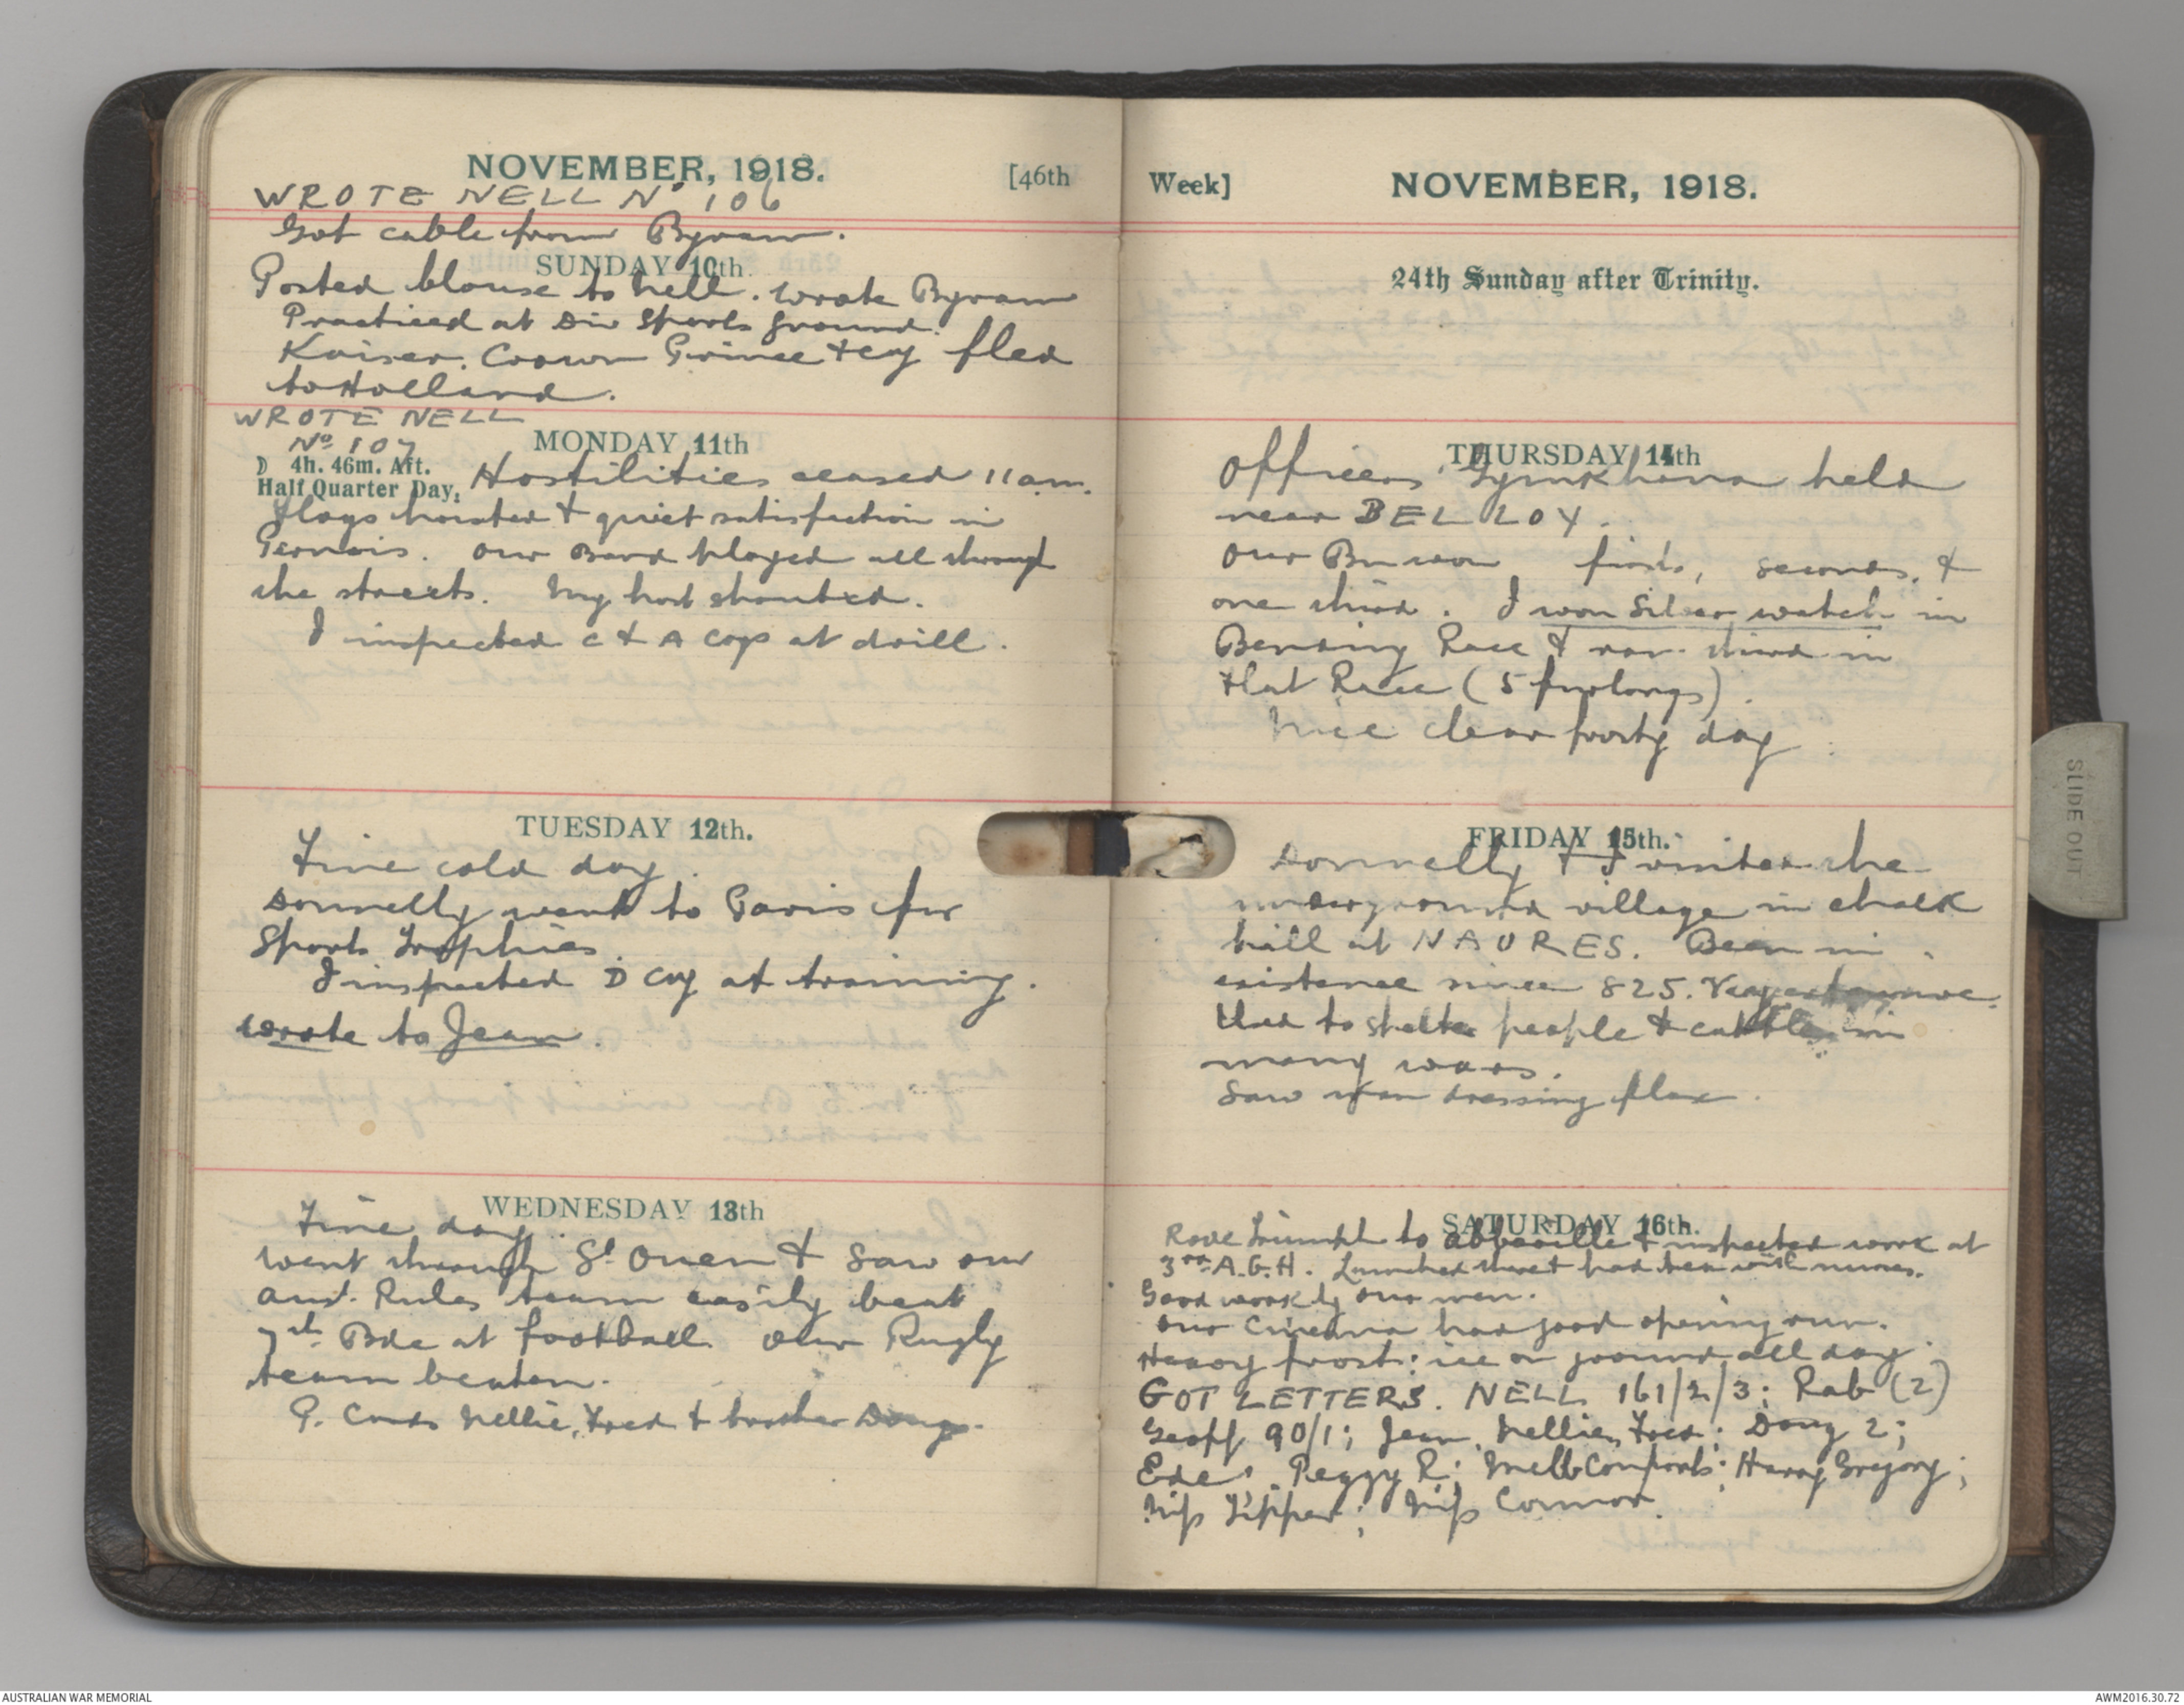 NOVEMBER, 1918.
[46th
WROTE NELL No 106
Got cable from Byram.
SUNDAY 10th.
Posted blouse to Nell. Wrote Byram
Practiced at Div Sports ground.
Kaiser. Crown Prince & coy fled
to Holland.
WROTE NELL
No 107
MONDAY 11th
D 4h. 46m. Aft.
Half Quarter Day.
Hostilities ceased 11am.
Flags hoisted & quiet satisfaction in
Pernois. Our Band played all through
the streets. My host shouted.
I inspected C & A Coys at drill.
TUESDAY 12th.
Fine cold day.
Donnelly went to Paris for
Sports Trophies.
I inspected D Coy at training.
Wrote to Jean.
WEDNESDAY 13th
Fine day.
Went through St Ouen & saw our
Aust. Rules team easily beat
7th Bde at football. Our Rugby
team beaten.
P. Cards Nellie, Fred & brother Doug.
Week]
NOVEMBER, 1918.
24th Sunday after Trinity.
THURSDAY 14th
Officers Gymkhana held
near BELLOY.
Our Bn won firsts, seconds, &
one third. I won Silver watch in
Bending Race & ran third in
Flat Race (5 furlongs).
Nice clear frosty day.
FRIDAY 15th.
Donnelly & I visited the
underground village in chalk
hill at NAURES. Been in
existence since 825.
Used to shelter people & cattle in
many wars.
Saw man dressing flax.
SATURDAY 16th.
Rode Triumph to Abbeville & inspected work at
3rd A.G.H. Lunched there & had tea with nurses.
Good work by our men.
Our Cinema had good opening run.
Heavy frost: ice on ground all day.
GOT LETTERS. NELL 161/2/3; Rab (2)
Geoff 90/1; Jean, Nellie, Fred; Doug 2;
Ede; Peggy R; Melb Comforts; Harry Gregory;
Miss Tipper; Miss Connor.
SLIDE OUT
AUSTRALIAN WAR MEMORIAL
AWM2016.30.72